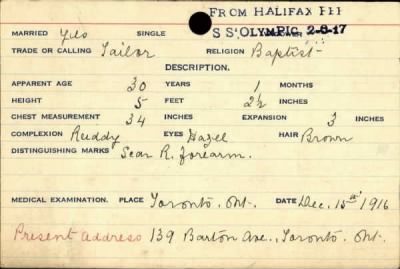 FROM HALIFAX
MARRIED Yes SINGLE
S S. OLYMPIC 2-8-17
TRADE OR CALLING Tailor RELIGION Baptist
DESCRIPTION.
APPARENT AGE 30 YEARS 1 MONTHS
HEIGHT 5 FEET 2½ INCHES
CHEST MEASUREMENT 34 INCHES EXPANSION 3 INCHES
COMPLEXION Ruddy EYES Hazel HAIR Brown
DISTINGUISHING MARKS Scar R. forearm.
MEDICAL EXAMINATION. PLACE Toronto. Ont. DATE Dec. 15th 1916
Present Address 139 Barton Ave., Toronto. Ont.